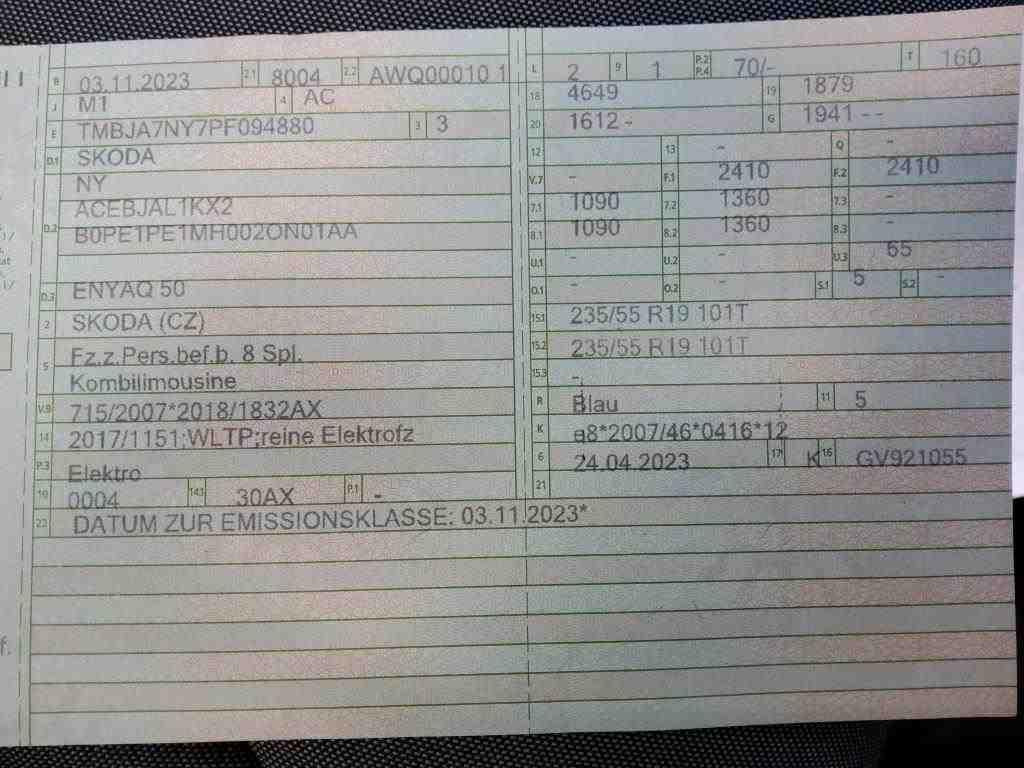 II I
B 03.11.2023 2.1 8004 2.2 AWQ00010 1
J M1 4 AC
E TMBJA7NY7PF094880 3 3
D.1 SKODA
NY
D.2 ACEBJAL1KX2
B0PE1PE1MH002ON01AA
D.3 ENYAQ 50
2 SKODA (CZ)
5 Fz.z.Pers.bef.b. 8 Spl.
Kombilimousine
V.9 715/2007*2018/1832AX
14 2017/1151;WLTP;reine Elektrofz
P.3 Elektro
10 0004 14.1 30AX P.1 -
22 DATUM ZUR EMISSIONSKLASSE: 03.11.2023*
L 2 9 1 P.2 P.4 70/- T 160
18 4649 19 1879
20 1612 - G 1941 - -
12 13 - Q -
V.7 - F.1 2410 F.2 2410
7.1 1090 7.2 1360 7.3 -
8.1 1090 8.2 1360 8.3 -
U.1 - U.2 - U.3 65
O.1 - O.2 - S.1 5 S.2 -
15.1 235/55 R19 101T
15.2 235/55 R19 101T
15.3 -
R Blau 11 5
K e8*2007/46*0416*12
6 24.04.2023 17 K 16 GV921055
21
f.